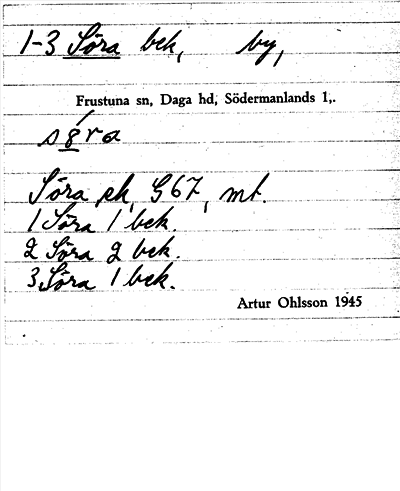 1-3 Söra bek, by,
Frustuna sn, Daga hd, Södermanlands l,.
sö́ra
Söra ek, G67, mt.
1 Söra 1 bek.
2 Söra 2 bek.
3 Söra 1 bek.
Artur Ohlsson 1945